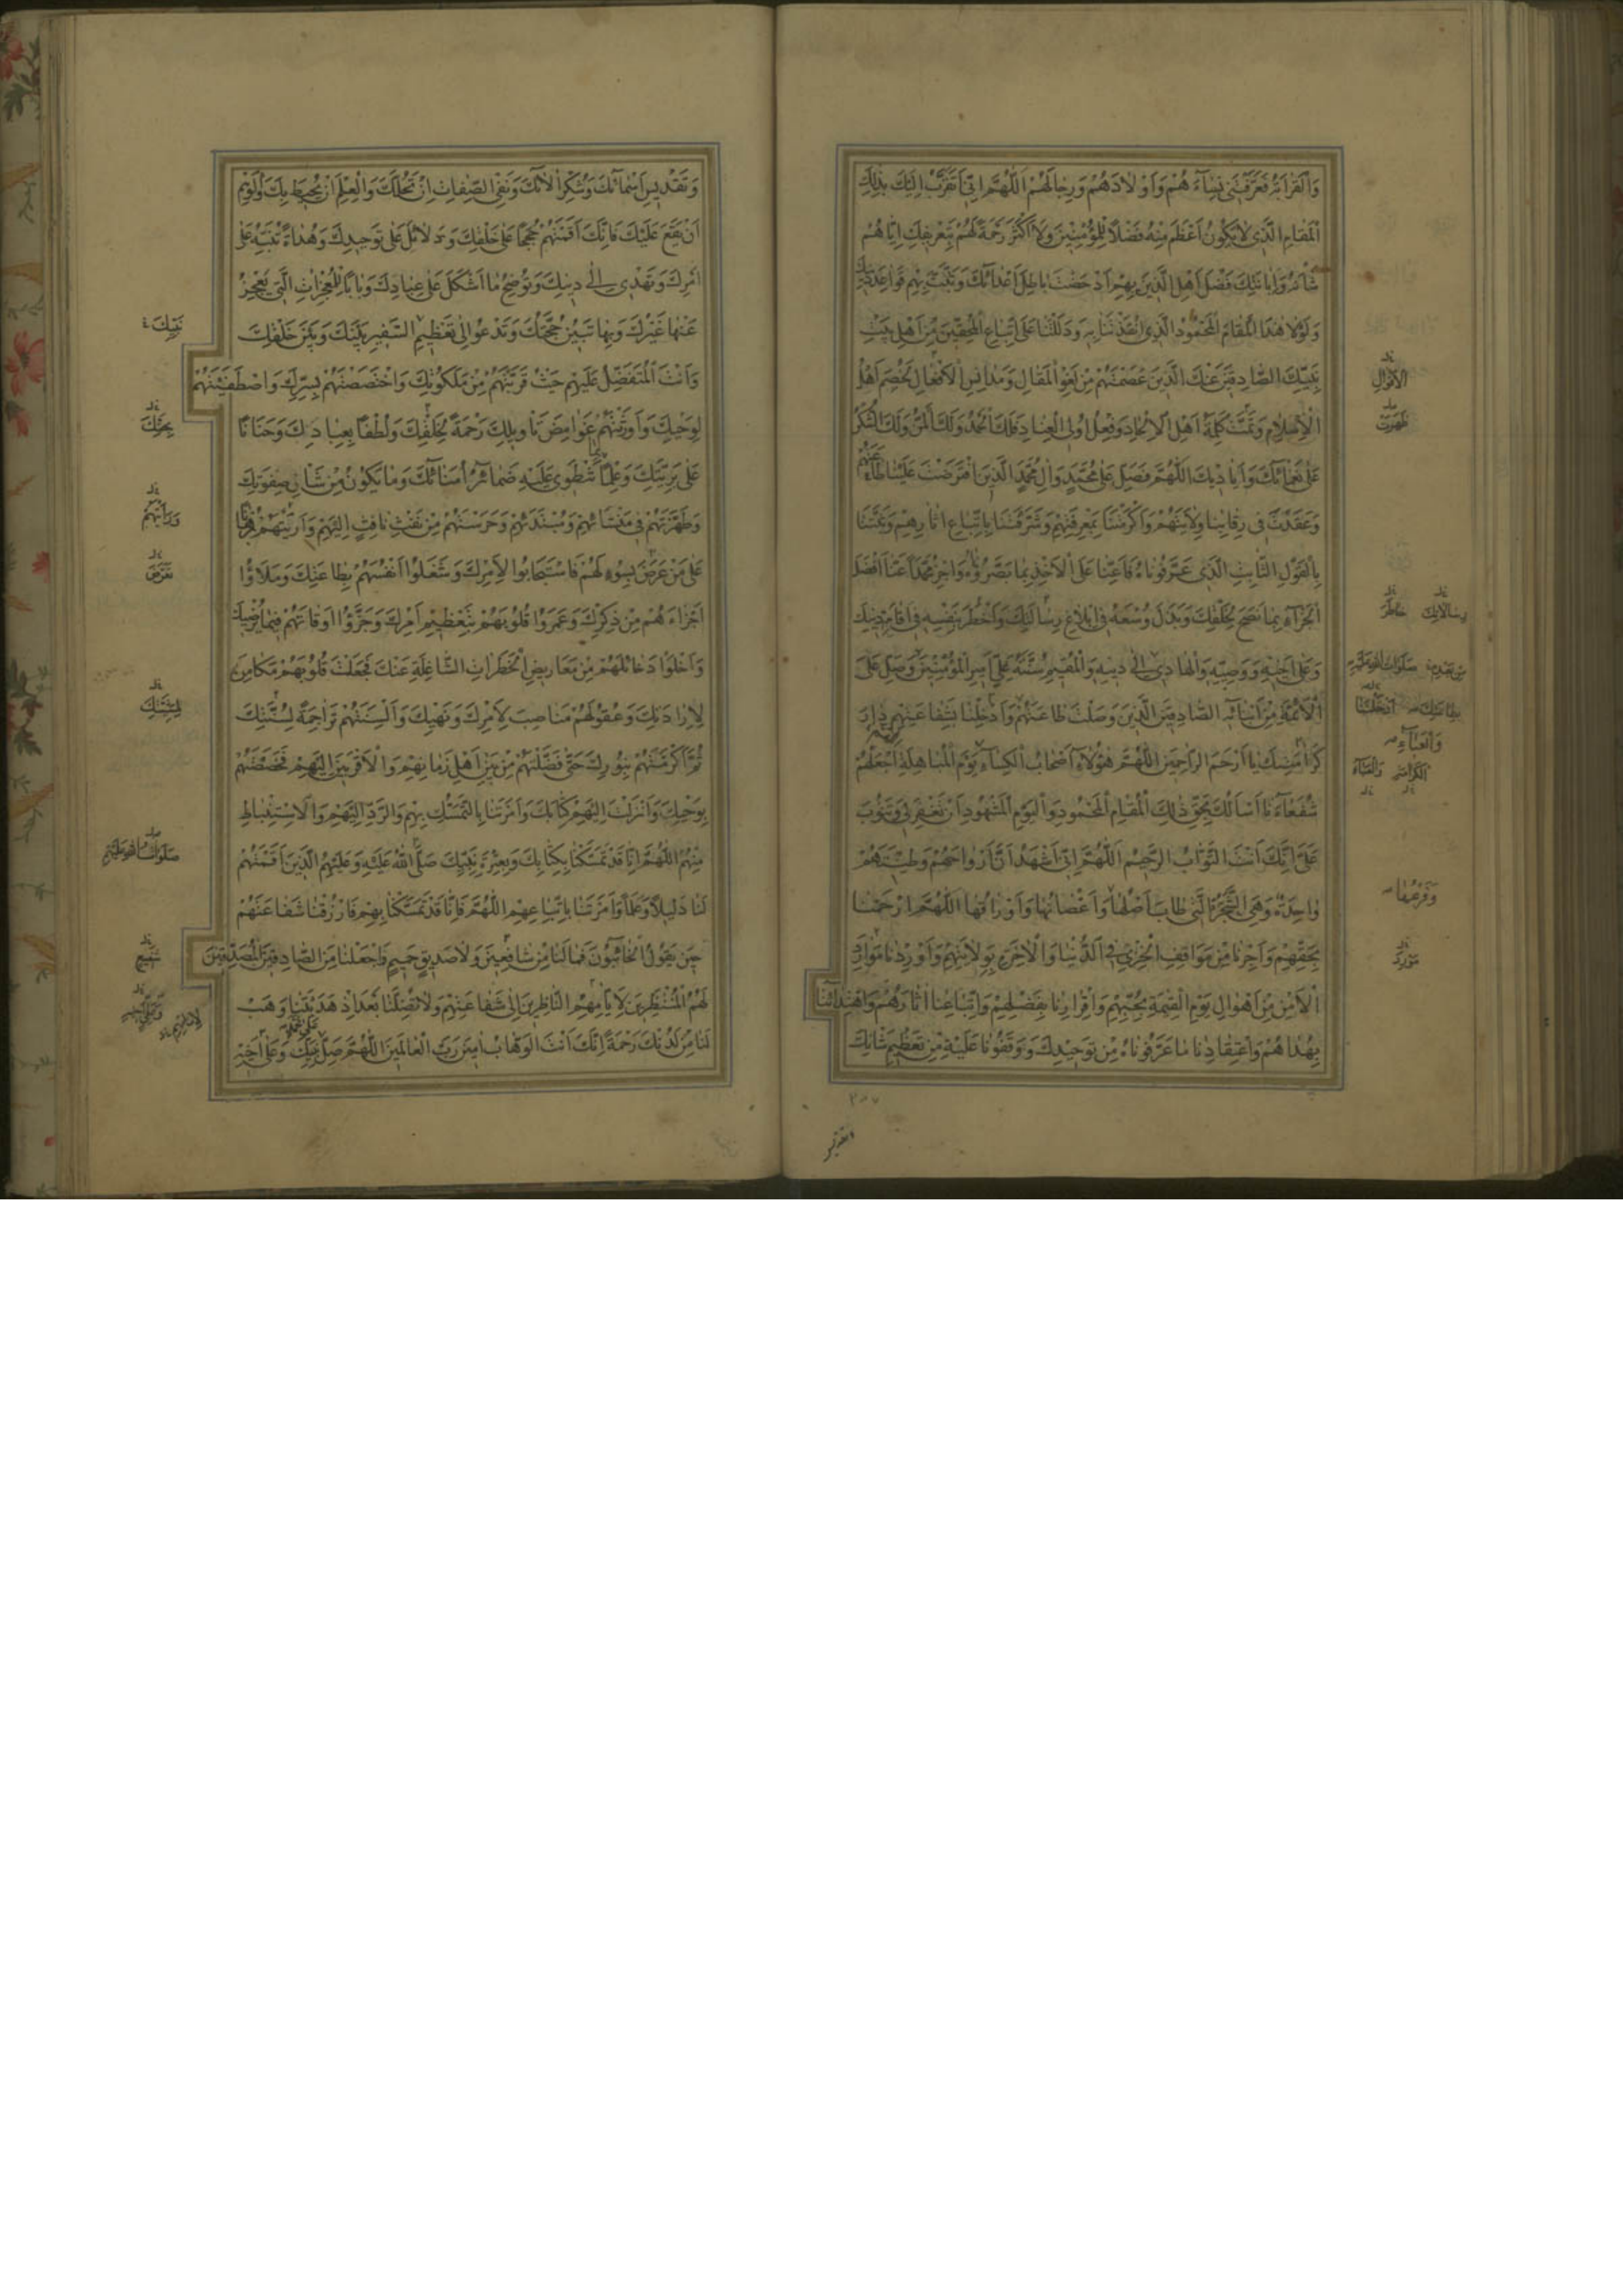 وَالْقَرَابَةَ فَعَرَّفْتَنِي نِسَاءَهُمْ وَأَوْلَادَهُمْ وَرِجَالَهُمْ اللَّهُمَّ إِنِّي أَتَقَرَّبُ إِلَيْكَ بِذَلِكَ
الْمَقَامِ الَّذِي لَا يَكُونُ أَعْظَمَ مِنْهُ فَضْلًا لِلْمُؤْمِنِينَ وَلَا أَكْثَرَ رَحْمَةً لَهُمْ بِتَعْرِيفِكَ إِيَّاهُمْ
شَأْنَهُ وَإِبَانَتِكَ فَضْلَ أَهْلِهِ الَّذِينَ بِهِمْ أَدْحَضْتَ بَاطِلَ أَعْدَائِكَ وَثَبَّتَّ بِهِمْ قَوَاعِدَ دِينِكَ
وَلَوْلَا هَذَا الْمَقَامُ الْمَحْمُودُ الَّذِي أَنْقَذْتَنَا بِهِ وَدَلَلْتَنَا عَلَى اتِّبَاعِ الْمُحِقِّينَ مِنْ أَهْلِ بَيْتِ
نَبِيِّكَ الصَّادِقِينَ عَنْكَ الَّذِينَ عَصَمْتَهُمْ مِنْ لَغْوِ الْمَقَالِ وَمَدَانِسِ الْأَفْعَالِ لَخُصِمَ أَهْلُ
الْإِسْلَامِ وَتَمَّتْ كَلِمَةُ أَهْلِ الْإِلْحَادِ وَفِعْلُ أُولِي الْعِنَادِ فَلَكَ الْحَمْدُ وَلَكَ الْمَنُّ وَلَكَ الشُّكْرُ
عَلَى نَعْمَائِكَ وَأَيَادِيكَ اللَّهُمَّ فَصَلِّ عَلَى مُحَمَّدٍ وَآلِ مُحَمَّدٍ الَّذِينَ افْتَرَضْتَ عَلَيْنَا طَاعَتَهُمْ
وَعَقَدْتَ فِي رِقَابِنَا وِلَايَتَهُمْ وَأَكْرَمْتَنَا بِمَعْرِفَتِهِمْ وَشَرَّفْتَنَا بِاتِّبَاعِ آثَارِهِمْ وَثَبَّتَّنَا
بِالْقَوْلِ الثَّابِتِ الَّذِي عَرَّفُونَاهُ فَأَعِنَّا عَلَى الْأَخْذِ بِمَا بَصَّرُونَاهُ وَاجْزِ مُحَمَّدًا عَنَّا أَفْضَلَ
الْجَزَاءِ بِمَا نَصَحَ لِخَلْقِكَ وَبَذَلَ وُسْعَهُ فِي إِبْلَاغِ رِسَالَتِكَ وَأَخْطَرَ بِنَفْسِهِ فِي إِقَامَةِ دِينِكَ
وَعَلَى أَخِيهِ وَوَصِيِّهِ وَالْهَادِي إِلَى دِينِهِ وَالْمُقِيمِ سُنَّتَهُ عَلِيٍّ أَمِيرِ الْمُؤْمِنِينَ وَصَلِّ عَلَى
الْأَئِمَّةِ مِنْ أَبْنَائِهِ الصَّادِقِينَ الَّذِينَ وَصَلْتَ طَاعَتَهُمْ وَأَدْخِلْنَا بِشَفَاعَتِهِمْ دَارَ
كَرَامَتِكَ يَا أَرْحَمَ الرَّاحِمِينَ اللَّهُمَّ هَؤُلَاءِ أَصْحَابُ الْكِسَاءِ يَوْمَ الْمُبَاهَلَةِ اجْعَلْهُمْ
شُفَعَاءَنَا أَسْأَلُكَ بِحَقِّ ذَلِكَ الْمَقَامِ الْمَحْمُودِ وَالْيَوْمِ الْمَشْهُودِ أَنْ تَغْفِرَ لِي وَتَتُوبَ
عَلَيَّ إِنَّكَ أَنْتَ التَّوَّابُ الرَّحِيمُ اللَّهُمَّ إِنِّي أَشْهَدُ أَنَّ أَرْوَاحَهُمْ وَطِينَتَهُمْ
وَاحِدَةٌ وَهِيَ الشَّجَرَةُ الَّتِي طَابَ أَصْلُهَا وَأَغْصَانُهَا وَأَوْرَاقُهَا اللَّهُمَّ ارْحَمْنَا
بِحَقِّهِمْ وَأَجِرْنَا مِنْ مَوَاقِفِ الْخِزْيِ فِي الدُّنْيَا وَالْآخِرَةِ بِوِلَايَتِهِمْ وَأَوْرِدْنَا مَوَارِدَ
الْأَمْنِ مِنْ أَهْوَالِ يَوْمِ الْقِيَمَةِ بِحُبِّهِمْ وَإِقْرَارِنَا بِفَضْلِهِمْ وَاتِّبَاعِنَا آثَارَهُمْ وَاهْتِدَائِنَا
بِهُدَاهُمْ وَاعْتِقَادِنَا مَا عَرَّفُونَاهُ مِنْ تَوْحِيدِكَ وَوَقَّفُونَا عَلَيْهِ مِنْ تَعْظِيمِ شَأْنِكَ
الْأَقْوَالِ
ظَهَرَتْ
رِسَالَاتِكَ خَاطَرَ
مِنْ بَعْدِهِ
وَفَرْعُهَا
مَوْرِدَ
وَتَقْدِيسِ أَسْمَائِكَ وَشُكْرِ آلَائِكَ وَنَفْيِ الصِّفَاتِ أَنْ تَحُلَّكَ وَالْعِلْمِ أَنْ يُحِيطَ بِكَ وَالْوَهْمِ
أَنْ يَقَعَ عَلَيْكَ فَإِنَّكَ أَقَمْتَهُمْ حُجَجًا عَلَى خَلْقِكَ وَدَلَائِلَ عَلَى تَوْحِيدِكَ وَهُدَاةً تُنَبِّهُ عَلَى
أَمْرِكَ وَتَهْدِي إِلَى دِينِكَ وَتُوضِحُ مَا أَشْكَلَ عَلَى عِبَادِكَ وَبَابًا لِلْمُعْجِزَاتِ الَّتِي يَعْجِزُ
عَنْهَا غَيْرُكَ وَبِهَا تَبِينُ حُجَّتُكَ وَتَدْعُو إِلَى تَعْظِيمِ السَّفِيرِ بَيْنَكَ وَبَيْنَ خَلْقِكَ
وَأَنْتَ الْمُتَفَضِّلُ عَلَيْهِمْ حَيْثُ قَرَّبْتَهُمْ مِنْ مَلَكُوتِكَ وَاخْتَصَصْتَهُمْ بِسِرِّكَ وَاصْطَفَيْتَهُمْ
لِوَحْيِكَ وَأَوْرَثْتَهُمْ غَوَامِضَ تَأْوِيلِكَ رَحْمَةً بِخَلْقِكَ وَلُطْفًا بِعِبَادِكَ وَحَنَانًا
عَلَى بَرِيَّتِكَ وَعِلْمًا بِمَا تَنْطَوِي عَلَيْهِ ضَمَائِرُ أُمَنَائِكَ وَمَا يَكُونُ مِنْ شَأْنِ صَفْوَتِكَ
وَطَهَّرْتَهُمْ فِي مَنْشَائِهِمْ وَمُبْتَدَئِهِمْ وَحَرَسْتَهُمْ مِنْ نَفْثِ نَافِثٍ إِلَيْهِمْ وَأَرَيْتَهُمْ بُرْهَانًا
عَلَى مَنْ عَرَضَ بِسُوءٍ لَهُمْ فَاسْتَجَابُوا لِأَمْرِكَ وَشَغَلُوا أَنْفُسَهُمْ بِطَاعَتِكَ وَمَلَأُوا
أَجْزَاءَهُمْ مِنْ ذِكْرِكَ وَعَمَرُوا قُلُوبَهُمْ بِتَعْظِيمِ أَمْرِكَ وَجَزَّؤُا أَوْقَاتَهُمْ فِيمَا يُرْضِيكَ
وَأَخْلَوْا دَخَائِلَهُمْ مِنْ مَعَارِيضِ الْخَطَرَاتِ الشَّاغِلَةِ عَنْكَ فَجَعَلْتَ قُلُوبَهُمْ مَكَامِنَ
لِإِرَادَتِكَ وَعُقُولَهُمْ مَنَاصِبَ لِأَمْرِكَ وَنَهْيِكَ وَأَلْسِنَتَهُمْ تَرَاجِمَةً لِسُنَّتِكَ
ثُمَّ أَكْرَمْتَهُمْ بِنُورِكَ حَتَّى فَضَّلْتَهُمْ مِنْ بَيْنِ أَهْلِ زَمَانِهِمْ وَالْأَقْرَبِينَ إِلَيْهِمْ فَخَصَصْتَهُمْ
بِوَحْيِكَ وَأَنْزَلْتَ إِلَيْهِمْ كِتَابَكَ وَأَمَرْتَنَا بِالتَّمَسُّكِ بِهِمْ وَالرَّدِّ إِلَيْهِمْ وَالِاسْتِنْبَاطِ
مِنْهُمْ اللَّهُمَّ إِنَّا قَدْ تَمَسَّكْنَا بِكِتَابِكَ وَبِعِتْرَةِ نَبِيِّكَ صَلَّى اللَّهُ عَلَيْهِ وَعَلَيْهِمُ الَّذِينَ أَقَمْتَهُمْ
لَنَا دَلِيلًا وَعَلَمًا وَأَمَرْتَنَا بِاتِّبَاعِهِمْ اللَّهُمَّ فَإِنَّا قَدْ تَمَسَّكْنَا بِهِمْ فَارْزُقْنَا شَفَاعَتَهُمْ
حِينَ يَقُولُ الْخَائِبُونَ فَمَا لَنَا مِنْ شَافِعِينَ وَلَا صَدِيقٍ حَمِيمٍ وَاجْعَلْنَا مِنَ الصَّادِقِينَ الْمُصَدِّقِينَ
لَهُمُ الْمُنْتَظِرِينَ لِأَيَّامِهِمْ النَّاظِرِينَ إِلَى شَفَاعَتِهِمْ وَلَا تُضِلَّنَا بَعْدَ إِذْ هَدَيْتَنَا وَهَبْ
لَنَا مِنْ لَدُنْكَ رَحْمَةً إِنَّكَ أَنْتَ الْوَهَّابُ آمِينَ رَبَّ الْعَالَمِينَ اللَّهُمَّ صَلِّ عَلَى مُحَمَّدٍ نَبِيِّكَ وَعَلَى أَخِيهِ
نَبِيِّكَ